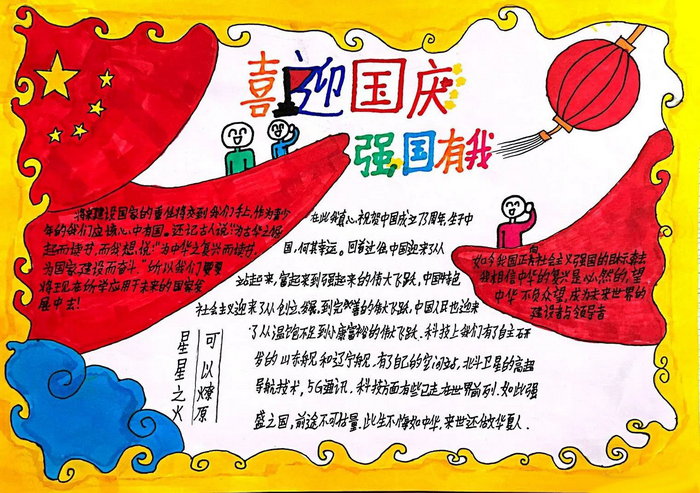 喜迎国庆
强国有我
将来建设国家的重任将交到我们手上,作为青少
年的我们应该心中有国。还记古人说“为古华之崛
起而读书,而我想说:“为中华之复兴而读书,
为国家建设而奋斗。”所以我们要要
将现在所学应用于未来的国家发
展中去!
在此我衷心祝贺中国成立73周年,生于中
国,何其幸运。回首过往,中国迎来了从
站起来,富起来到强起来的伟大飞跃,中国特色
社会主义迎来了从创立,发展,到完善的伟大飞跃,中国人民也迎来
了从温饱不足到小康富裕的伟大飞跃.科技上我们有了自主研
发的山东舰和辽宁舰,有了自己的空间站,北斗卫星的高超
导航技术,5G通讯,科技方面有些已走在世界前列.如此强
盛之国,前途不可估量.此生不悔如中华,来世还做华夏人.
如今我国正向社会主义强国的目标奔去
我相信中华的复兴是必然的,望
中华不负众望,成为未来世界的
建设者与领导者
星星之火
可以燎原